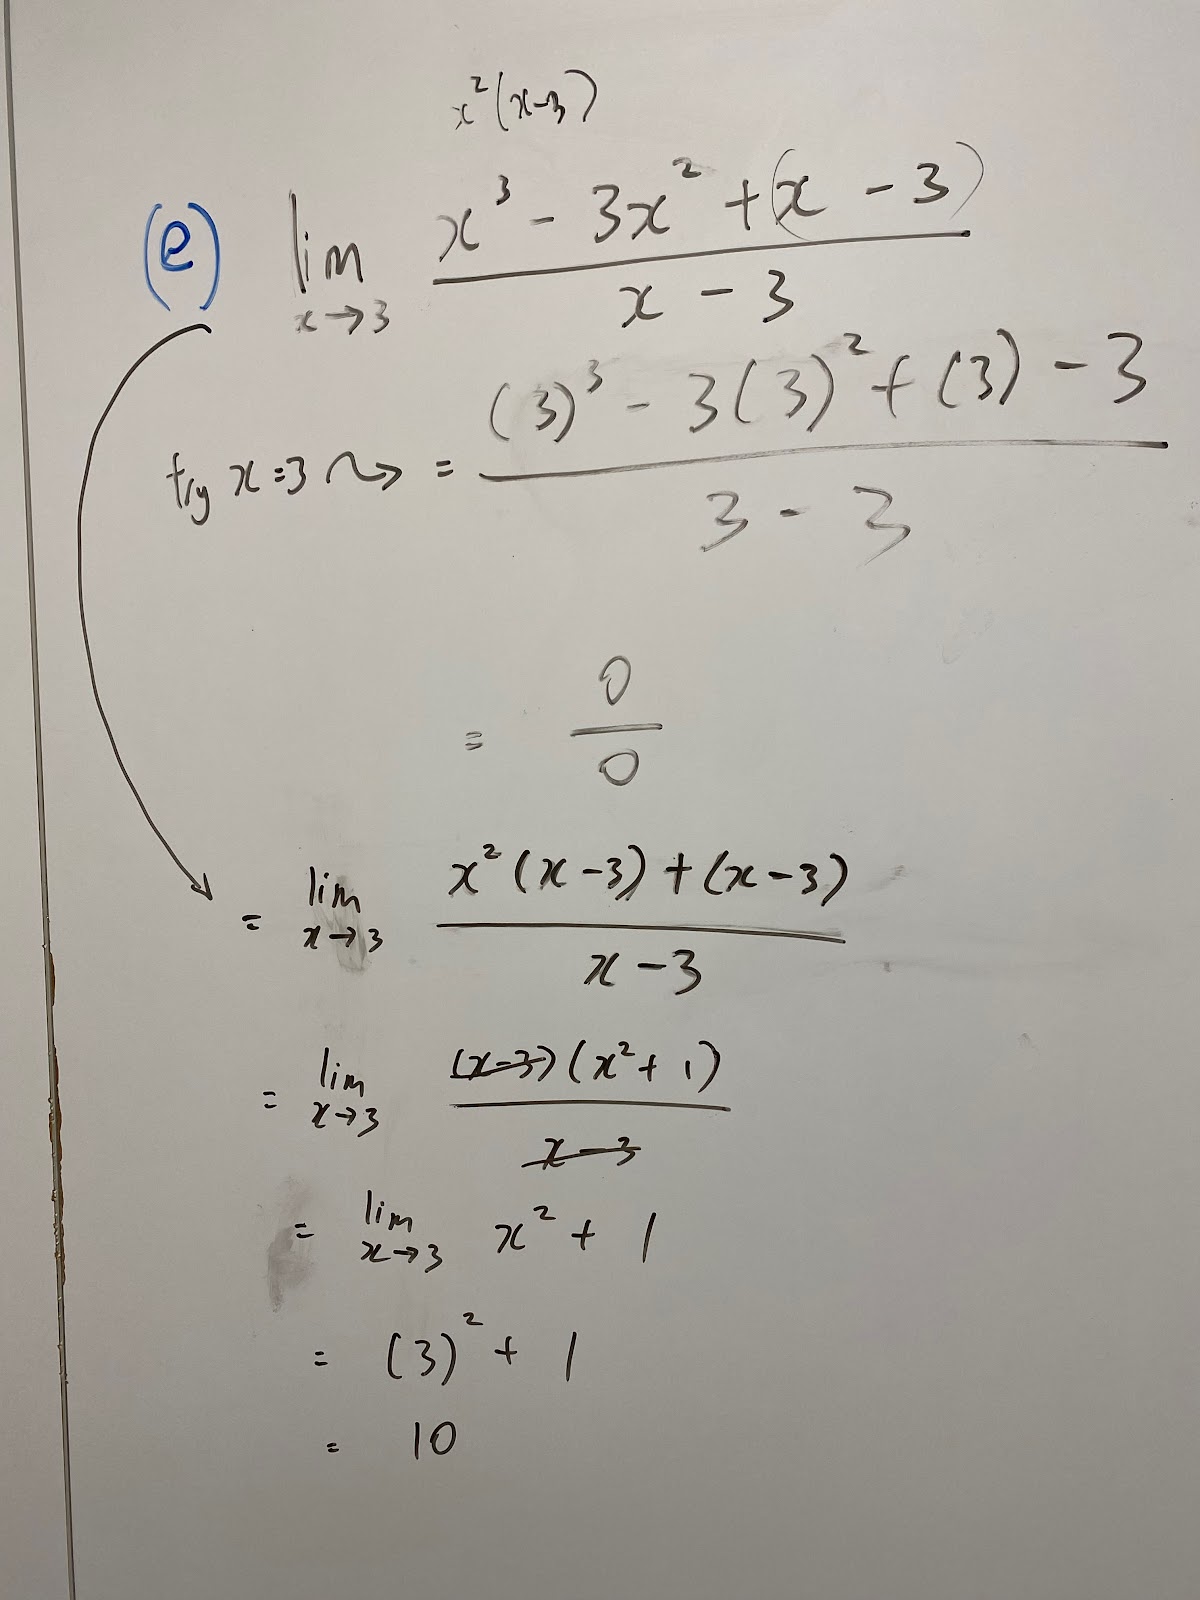 x²(x-3)
(e) lim x→3 (x³ - 3x² + (x - 3)) / (x - 3)
try x=3 ⤳ = ((3)³ - 3(3)² + (3) - 3) / (3 - 3)
= 0/0
= lim x→3 (x²(x-3) + (x-3)) / (x-3)
= lim x→3 ((x-3)(x²+1)) / (x-3)
= lim x→3 x² + 1
= (3)² + 1
= 10